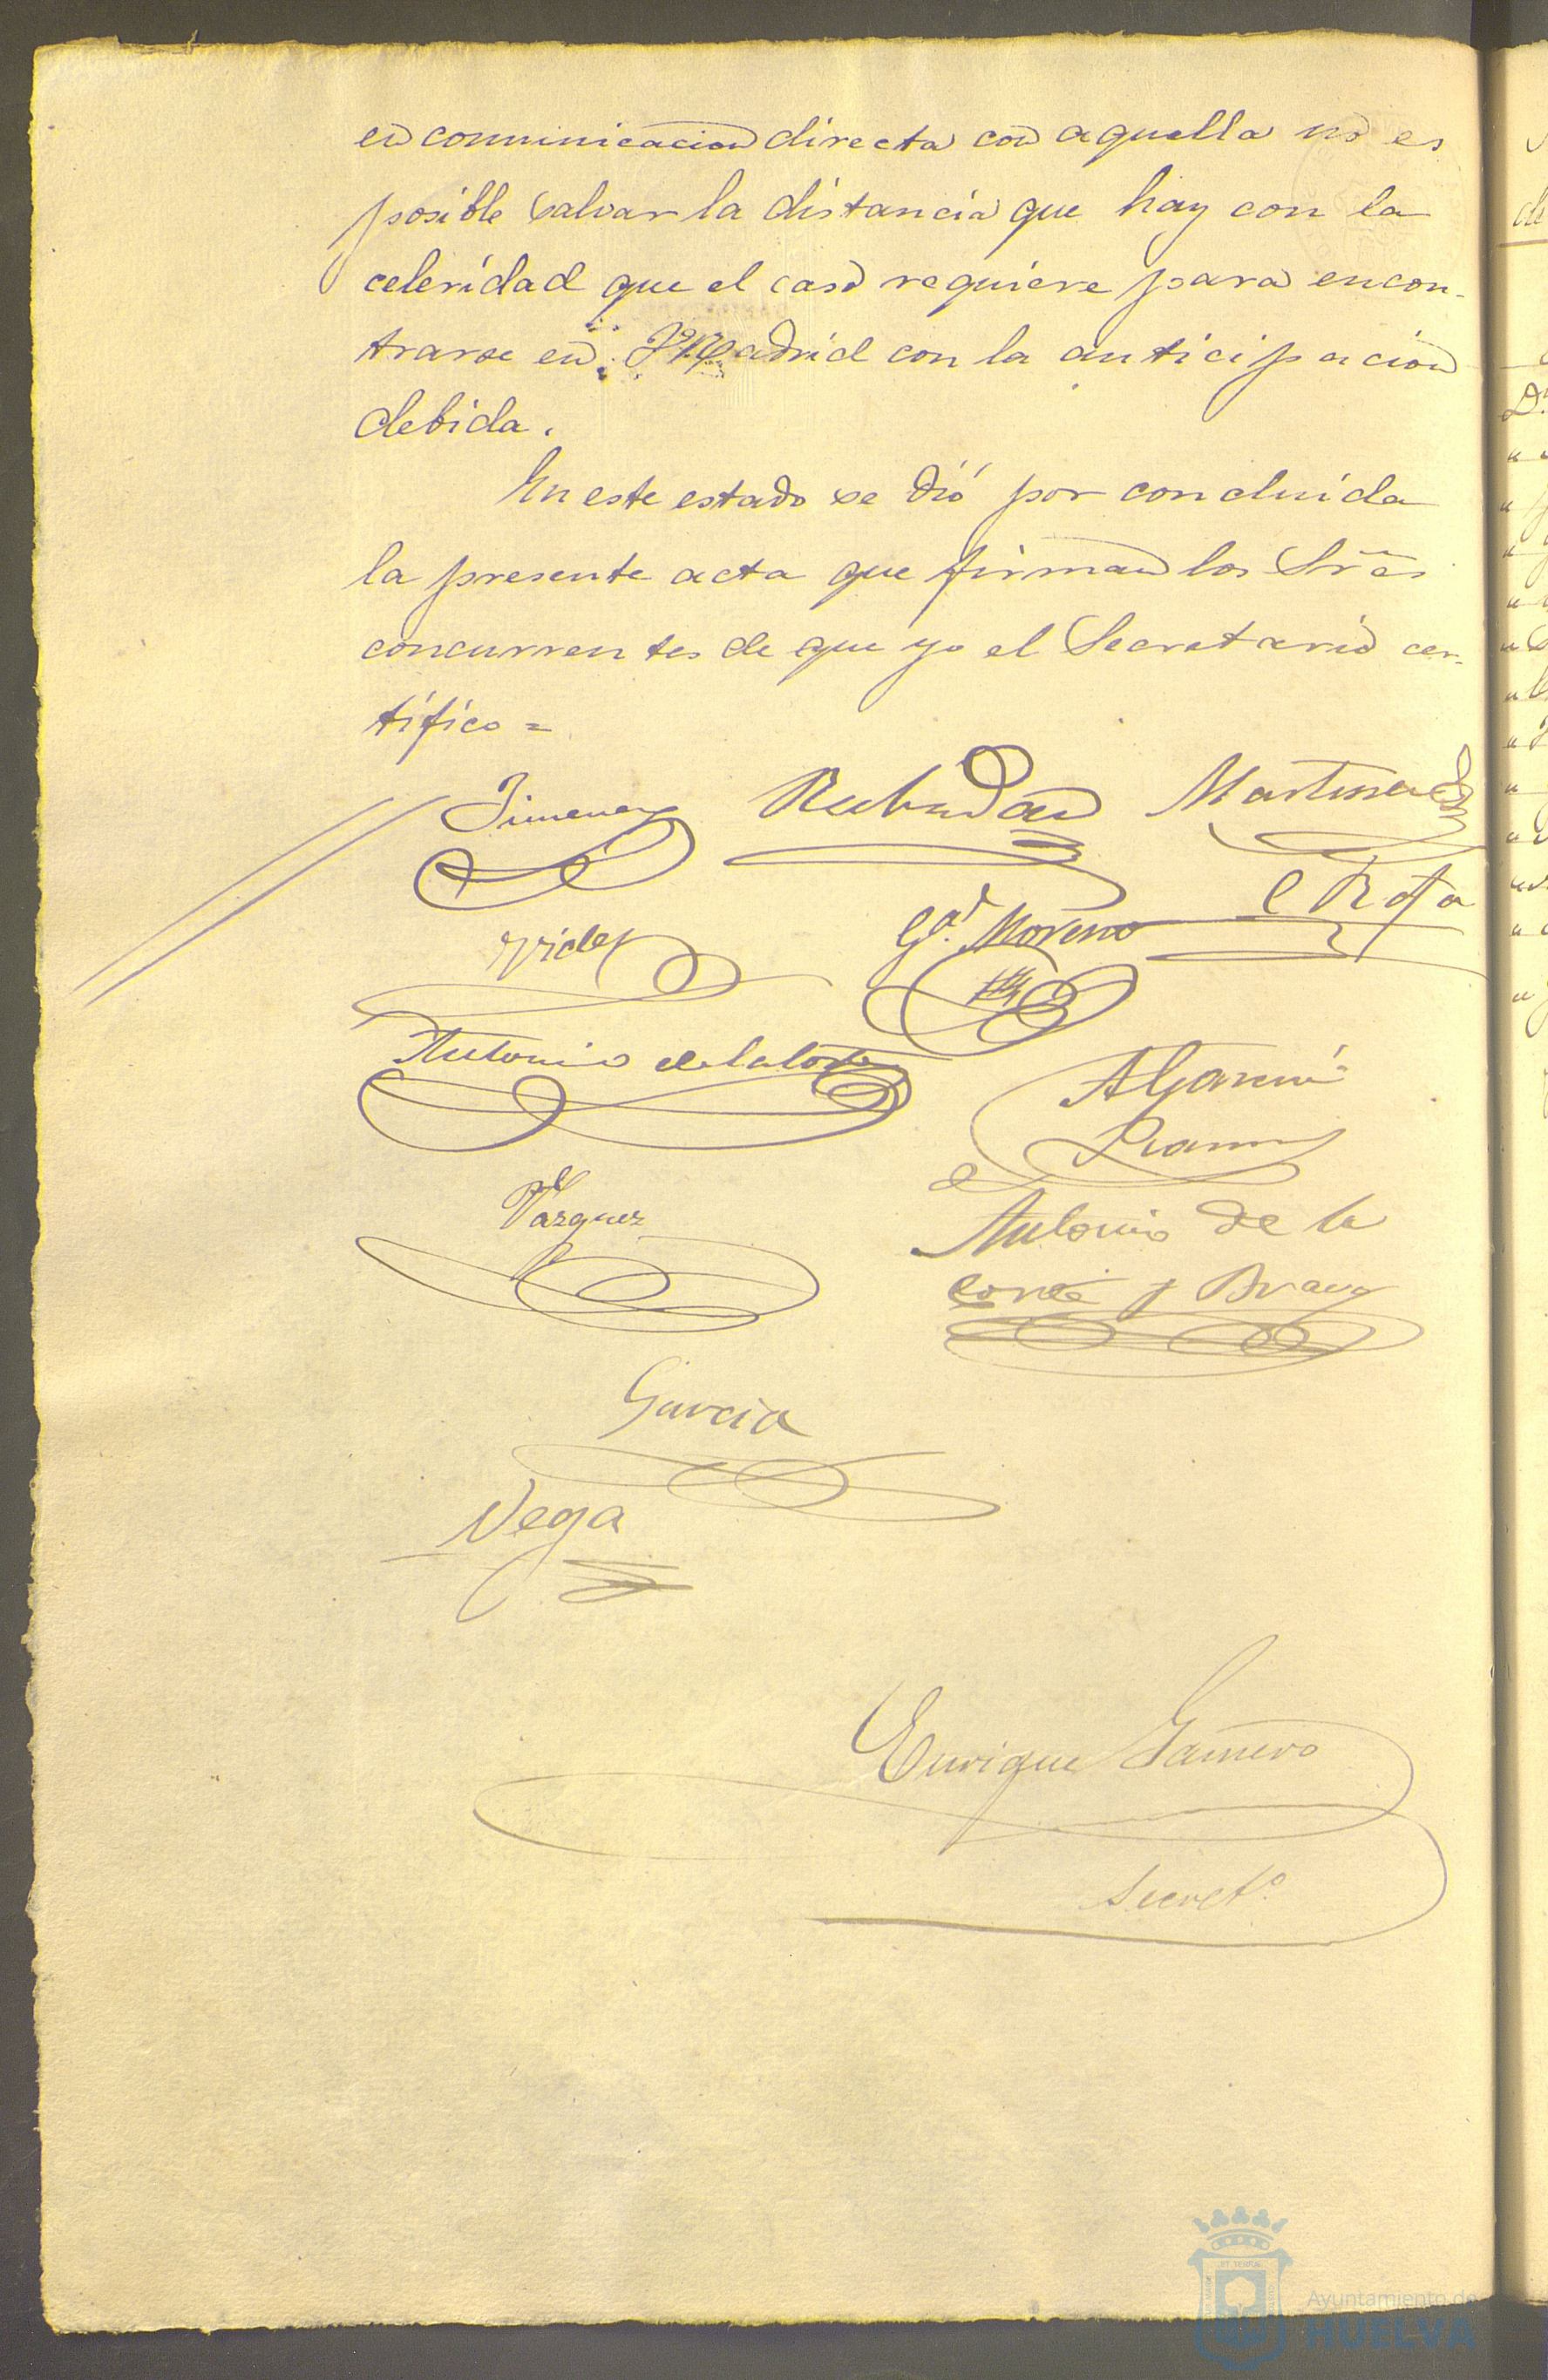 en comunicacion directa con aquella no es
posible salvar la distancia que hay con la
celeridad que el caso requiere para encon-
trarse en Madrid con la anticipacion
debida.
En este estado se dió por concluida
la presente acta que firman los Sres
concurrentes de que yo el Secretario cer-
tifico =
Jimenez Martinez
C Rofa
Gª. Moreno
Antonio de la Corte
A Garcia
Ramos
Vazquez
Antonio de la
Corte y Bravo
Garcia
Vega
Enrique Gamero
Secretº
Ayuntamiento de
HUELVA